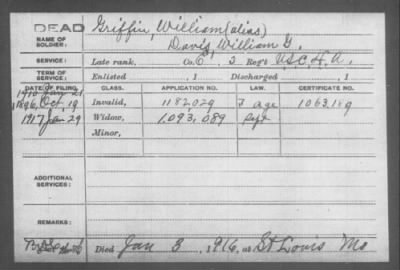 DEAD
NAME OF SOLDIER: Griffin, William (alias)
Davis, William G.
SERVICE: Late rank, Co. C, 3 Reg't U.S.C.H.A.
TERM OF SERVICE: Enlisted , 1 Discharged , 1
DATE OF FILING. CLASS. APPLICATION NO. LAW. CERTIFICATE NO.
1910 Jan 21
1896, Oct, 19 Invalid, 1182029 F age 1063.189
1917 Jan 29 Widow, 1.093,089 Sept
Minor,
ADDITIONAL SERVICES:
REMARKS:
Died Jan 3, 1916, at St Louis Mo